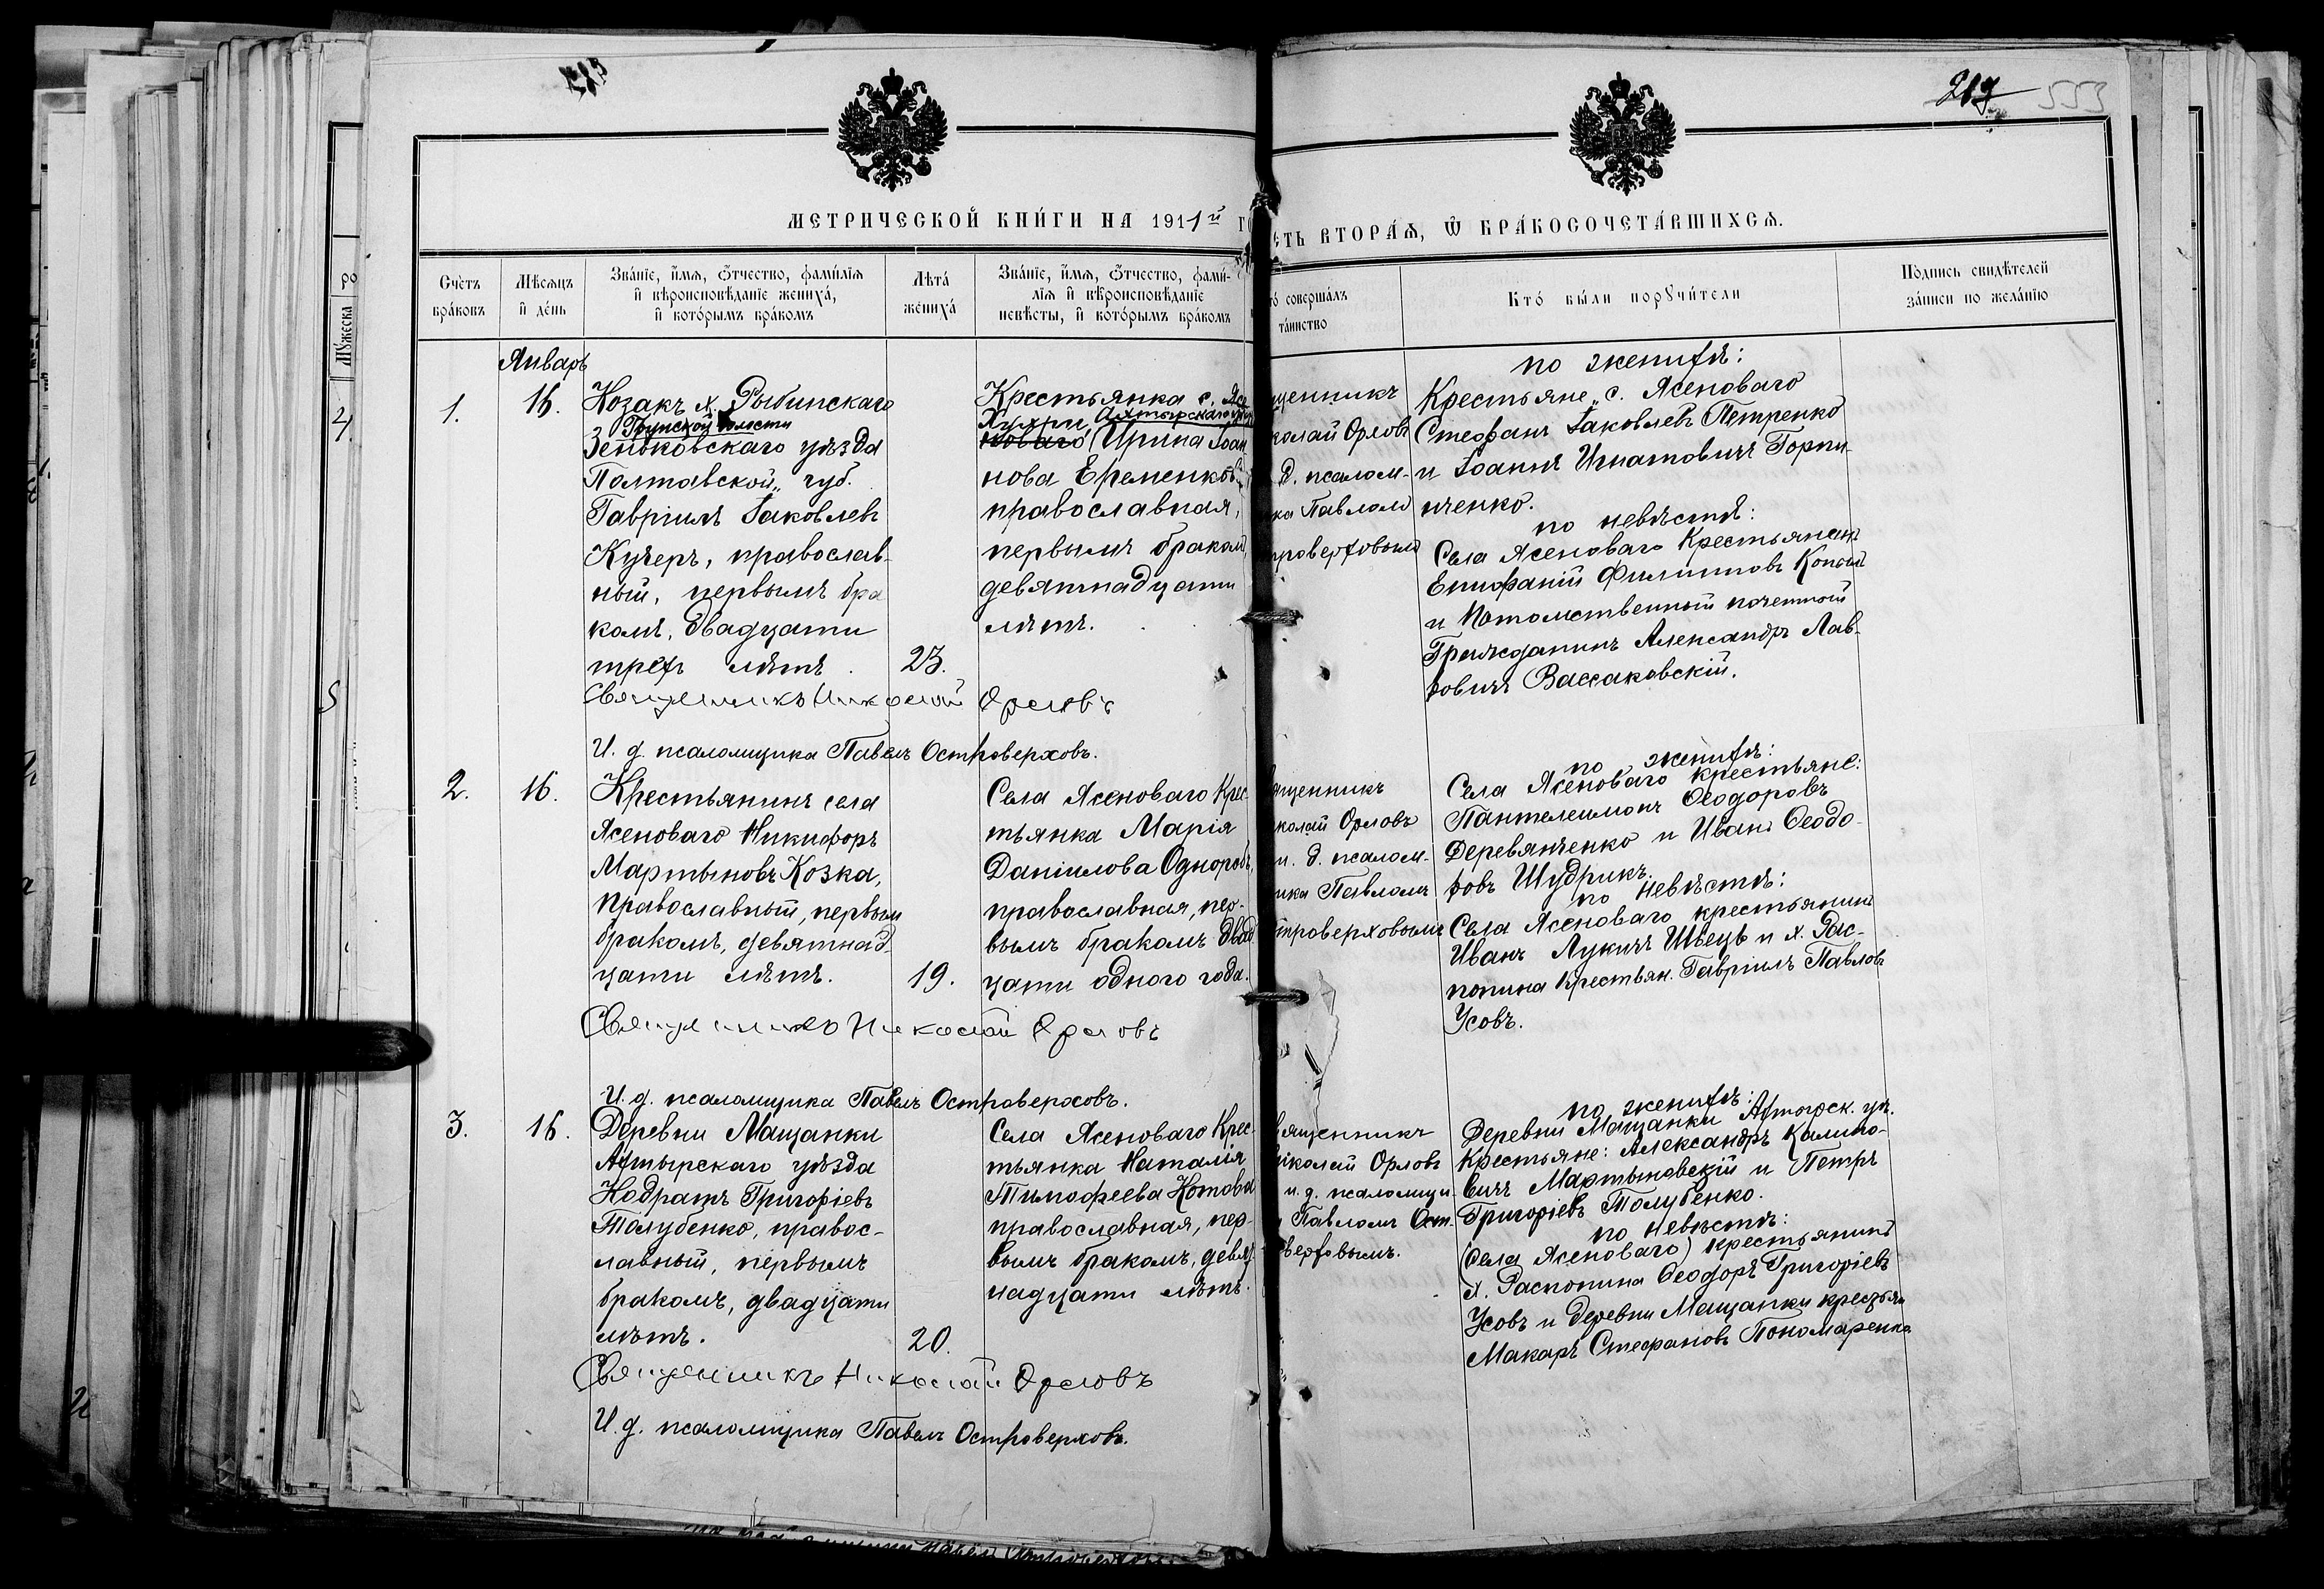 217 553
МЕТРИЧЕСКОЙ КНИ́ГИ НА 1911й ГО
СТЬ ВТОРА́Ѧ, Ѿ БРА́КОСОЧЕТА́ВШИХСѦ.
Сче́тъ бра́ковъ
Мѣ́сяцъ и де́нь
Зва́нїе, и́мѧ, ѻ́тчество, фами́лїѧ и҆ вѣроисповѣ́данїе жениха́, и҆ кото́рымъ бра́комъ
Лѣта̀ жениха́
Зва́нїе, и́мѧ, ѻ́тчество, фами́лїѧ и҆ вѣроисповѣ́данїе невѣ́сты, и҆ кото́рымъ бра́комъ
то́ соверша́лъ та́инство
Кто́ бы́ли порꙋчи́тели
По́дпись свидѣ́телей за́писи по жела́нїю
Январь
1.
16.
Козакъ х. Рыбинскаго
Грунской волости
Зеньковскаго уѣзда
Полтавской губ.
Гавріилъ Іаковлевъ
Кучеръ, православ-
ный, первымъ бра
комъ, двадцати
трехъ лѣтъ.
23.
Крестьянка с. Ясе
Хухри, Ахтырскаго уѣз
новаго Ирина Іоан
нова Еременков
православная,
первымъ бракомъ,
девятнадцати
лѣтъ.
щенникъ
колай Орловъ
д. псалом-
ка Павломъ
троверховымъ
по женихѣ:
Крестьяне с. Ясеноваго
Стефанъ Іаковлевъ Петренко
и Іоаннъ Игнатовичъ Горпи-
нченко.
по невѣстѣ:
Села Ясеноваго Крестьянинъ
Епифаній Филипповъ
и Потомственный почетный
Гражданинъ Александръ Лав-
ровичъ Вассаковскій.
Священникъ Николай Орловъ
И. д. псаломщика Павелъ Островерховъ.
2.
16.
Крестьянинъ села
Ясеноваго Никифоръ
Мартыновъ Козка,
православный, первымъ
бракомъ, девятнад-
цати лѣтъ.
19.
Села Ясеноваго Крес-
тьянка Марія
Даніилова Однороб
православная, пер-
вымъ бракомъ двад
цати одного года.
ященникъ
колай Орловъ
и. д. псалом-
ика Павломъ
троверховымъ
по женихѣ:
Села Ясеноваго крестьяне:
Пантелеимонъ Ѳеодоровъ
Деревянченко и Иванъ Ѳеодо-
ровъ Шудрикъ.
по невѣстѣ:
Села Ясеноваго крестьянинъ
Иванъ Лукичъ Швецъ и х. Рас-
попина крестьян. Гавріилъ Павловъ
Усовъ.
Священникъ Николай Орловъ
И. д. псаломщика Павелъ Островерховъ.
3.
16.
Деревни Мащанки
Ахтырскаго уѣзда
Кодратъ Григоріевъ
Толубенко, правос-
лавный, первымъ
бракомъ, двадцати
лѣтъ.
20.
Села Ясеноваго Крес-
тьянка Наталія
Тимофеева Котова
православная, пер-
вымъ бракомъ, девят
надцати лѣтъ.
ященникъ
иколай Орловъ
и. д. псаломщи-
Павломъ Ост-
верховымъ.
по женихѣ:
Деревни Мащанки Ахтырск. уѣ.
Крестьяне: Александръ Калино-
вичъ Мартыновскій и Петръ
Григоріевъ Толубенко.
по невѣстѣ:
(Села Ясеноваго) крестьянинъ
х. Распопина Ѳеодоръ Григоріевъ
Усовъ и Деревни Мащанки крестьян
Макаръ Стефановъ Пономаренко
Священникъ Николай Орловъ
И. д. псаломщика Павелъ Островерховъ.